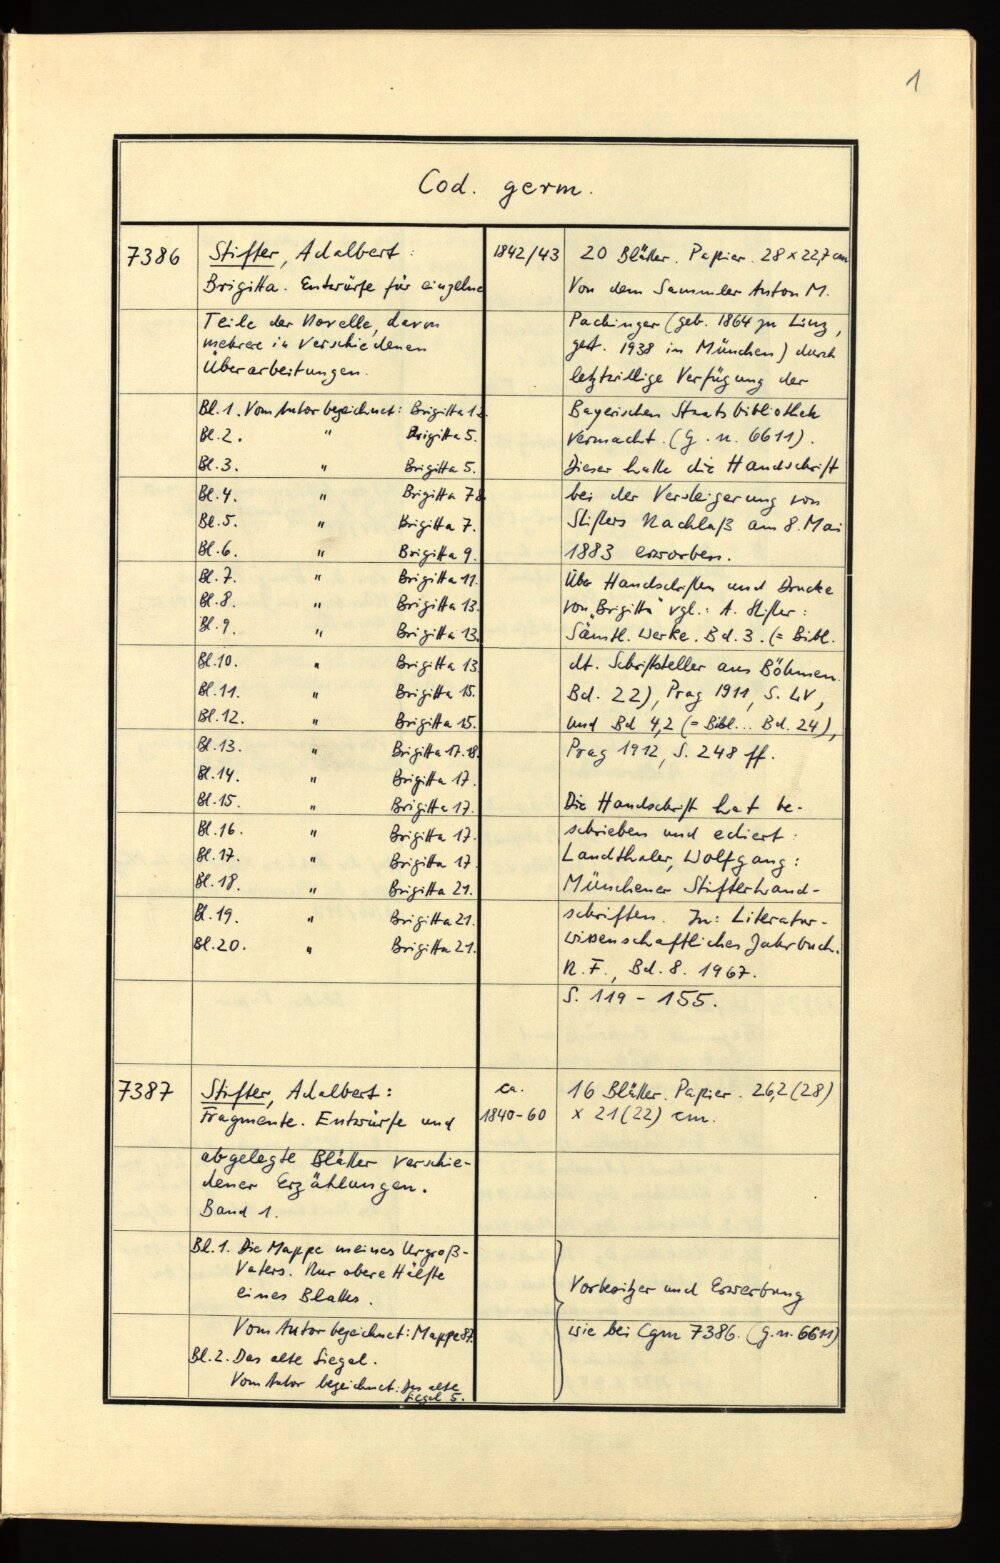 1
Cod. germ.
7386
Stifter, Adalbert:
Brigitta. Entwürfe für einzelne
Teile der Novelle, davon
mehrere in verschiedenen
Überarbeitungen.
Bl. 1. Vom Autor bezeichnet: Brigitta 12.
Bl. 2. " Brigitta 5.
Bl. 3. " Brigitta 5.
Bl. 4. " Brigitta 78.
Bl. 5. " Brigitta 7.
Bl. 6. " Brigitta 9.
Bl. 7. " Brigitta 11.
Bl. 8. " Brigitta 13.
Bl. 9. " Brigitta 13.
Bl. 10. " Brigitta 13
Bl. 11. " Brigitta 15.
Bl. 12. " Brigitta 15.
Bl. 13. " Brigitta 17.18.
Bl. 14. " Brigitta 17.
Bl. 15. " Brigitta 17.
Bl. 16. " Brigitta 17.
Bl. 17. " Brigitta 17.
Bl. 18. " Brigitta 21.
Bl. 19. " Brigitta 21.
Bl. 20. " Brigitta 21.
1842/43
20 Blätter. Papier. 28 x 22,7 cm
Von dem Sammler Anton M.
Pachinger (geb. 1864 zu Linz,
gest. 1938 in München) durch
letztwillige Verfügung der
Bayerischen Staatsbibliothek
vermacht. (g. n. 6611).
Dieser hatte die Handschrift
bei der Versteigerung von
Stifters Nachlaß am 8. Mai
1883 erworben.
Über Handschriften und Drucke
von "Brigitta" vgl.: A. Stifter:
Sämtl. Werke. Bd. 3. (= Bibl.
dt. Schriftsteller aus Böhmen.
Bd. 22), Prag 1911, S. LV,
und Bd 4,2 (= Bibl... Bd. 24),
Prag 1912, S. 248 ff.
Die Handschrift hat be-
schrieben und ediert:
Landthaler, Wolfgang:
Münchener Stifterhand-
schriften. In: Literatur-
wissenschaftliches Jahrbuch.
N. F., Bd. 8. 1967.
S. 119 - 155.
7387
Stifter, Adalbert:
Fragmente. Entwürfe und
abgelegte Blätter verschie-
dener Erzählungen.
Band 1.
Bl. 1. Die Mappe meines Urgroß-
vaters. Nur obere Hälfte
eines Blattes.
Vom Autor bezeichnet: Mappe 87.
Bl. 2. Das alte Siegel.
Vom Autor bezeichnet: Das alte
Siegel 5.
ca.
1840-60
16 Blätter. Papier. 26,2 (28)
x 21 (22) cm.
Vorbesitzer und Erwerbung
wie bei Cgm 7386. (g. n. 6611)